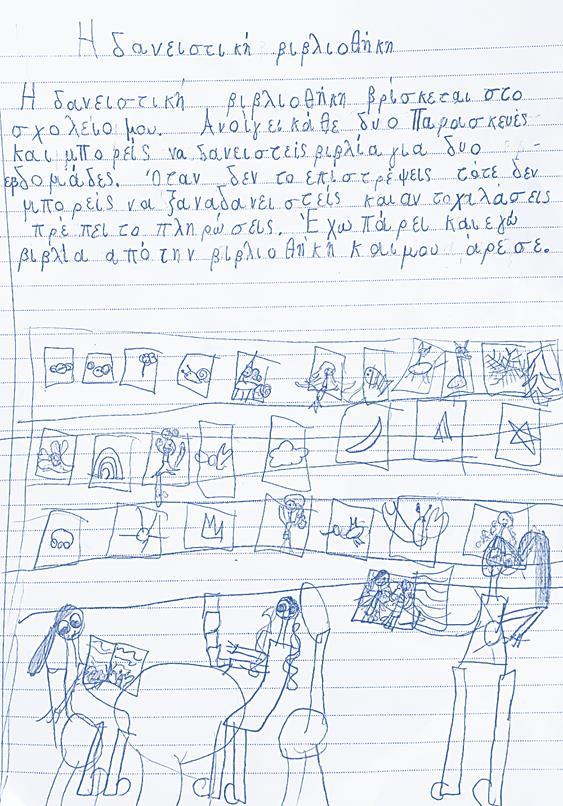 Η δανειστική βιβλιοθήκη
Η δανειστική βιβλιοθήκη βρίσκεται στο
σχολείο μου. Ανοίγει κάθε δυο Παρασκευές
και μπορείς να δανειστείς βιβλία για δυο
εβδομάδες. Όταν δεν το επιστρέψεις τότε δεν
μπορείς να ξαναδανειστείς και αν το χαλάσεις
πρέπει το πληρώσεις. Έχω πάρει και εγώ
βιβλία από την βιβλιοθήκη και μου άρεσε.